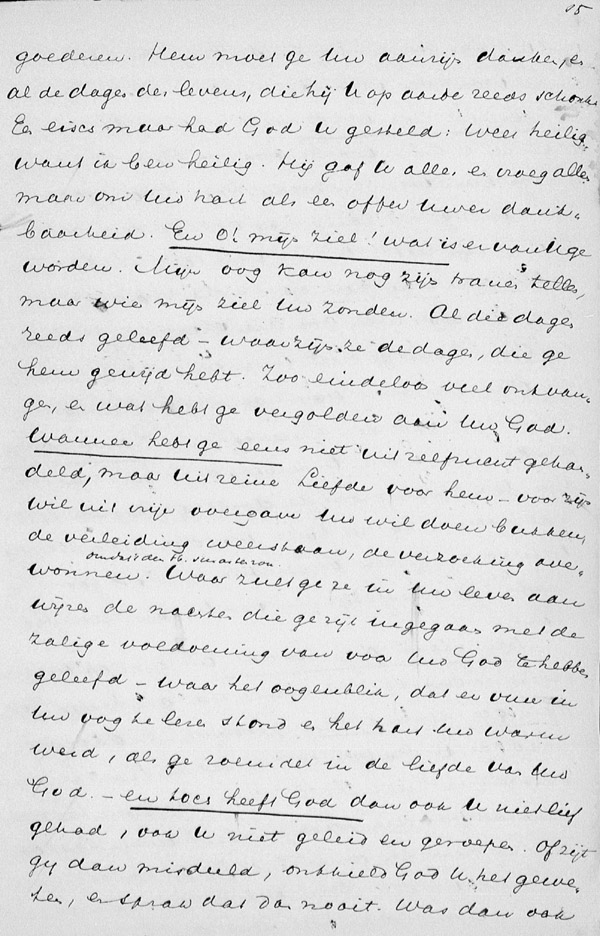 15
goederen. Hem moet ge Uw aanzijn danken, en
al de dagen des levens, die hij U op aarde reeds schonk.
Een eisch maar had God U gesteld: Wees heilig,
want ik ben heilig. Hij gaf U alles en vroeg alleen
maar om Uw hart als een offer Uwer dank-
baarheid. En O! mijn ziel! wat is er van U ge
worden. Mijn oog kan nog zijn tranen tellen,
maar wie mijn ziel Uw zonden. Al die dagen
reeds geleefd – waar zijn ze de dagen, die ge
hem gewijd hebt. Zoo eindeloos veel ontvan-
gen, en wat hebt ge vergolden aan Uw God.
Wanneer hebt ge eens niet uit zelfzucht gehan-
deld, maar uit reine Liefde voor hem – voor zijn
wil uit vrije overgave Uw wil doen bukken,
de verleiding weerstaan, de verzoeking over-
omdat der
wonnen. Waar zult ge ze in Uw leven aan
wijzen de nachten die ge zijt ingegaan met de
zalige voldoening van voor Uw God te hebben
geleefd – waar het oogenblik, dat er vuur in
Uw oog te lezen stond en het hart Uw warm
werd, als ge roemdet in de liefde van Uw
God. – en toch heeft God dan ook U niet lief
gehad, ook U niet geleid en geroepen. Of zijt
gij dan misdeeld, onthield God U het gewe-
ten, en sprak dat dan nooit. Was dan ook